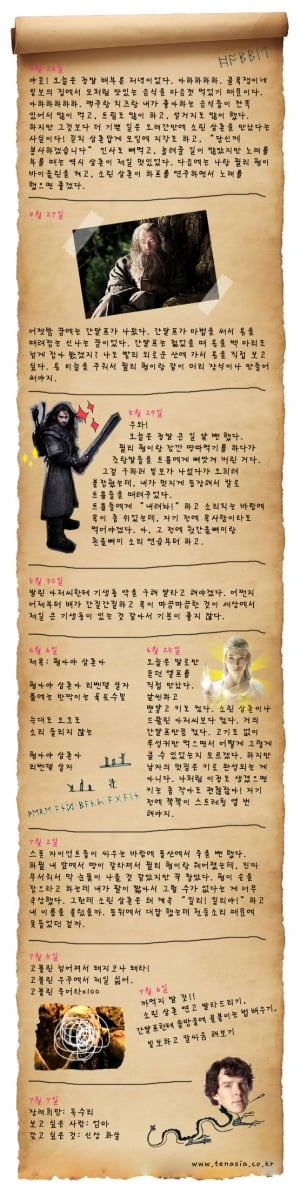 HOBBIT
4월 26일
아흠! 오늘은 정말 배부른 저녁이었다. 아하하하하. 골목쟁이네
빌보의 집에서 모처럼 맛있는 음식을 마음껏 먹었기 때문이다.
아하하하하하. 맥주랑 치즈랑 내가 좋아하는 음식들이 잔뜩
있어서 많이 먹고, 트림도 많이 하고, 설거지도 많이 했다.
하지만 그것보다 더 기쁜 일은 오래간만에 소린 삼촌을 만났다는
사실이다! 길릭 삼촌답게 모임에 지각도 하고, "당신께
봉사하겠습니다" 인사도 빼먹고, 놀려줄 일이 많았지만 노래를
부를 때는 역시 삼촌이 제일 멋있었다. 다음에는 나랑 필리 형이
바이올린을 켜고, 소린 삼촌이 하프를 연주하면서 노래를
했으면 좋겠다.
4월 27일
어젯밤 꿈에는 간달프가 나왔다. 간달프가 마법을 써서 용을
때려잡는 신나는 꿈이었다. 간달프는 젊었을 때 용을 백 마리도
넘게 잡아 봤겠지? 나도 빨리 외로운 산에 가서 용을 직접 보고
싶다. 용 비늘을 주워서 필리 형이랑 같이 머리 장식이나 만들어
써야지.
5월 29일
우와!
오늘은 정말 큰 일 날 뻔 했다.
필리 형이랑 잠깐 땅따먹기를 하다가
조랑말들을 트롤에게 빼앗겨 버린 거다.
그걸 구하러 빌보가 나섰다가 오히려
붙잡혔는데, 내가 멋지게 등장해서 칼로
트롤들을 때려주었다.
트롤들에게 "내려놔!" 하고 소리치는 바람에
목이 좀 쉬었는데, 자기 전에 목사탕이라도
먹어야겠다. 아, 그 전에 헛간올빼미랑
흰올빼미 소리 연습부터 하고.
5월 30일
발린 아저씨한테 기생충 약을 구해 달라고 해야겠다. 어쩐지
어제부터 배가 간질간질하고 목이 따끔따끔한 것이 세상에서
제일 큰 기생충이 있는 것 같아서 기분이 좋지 않다.
6월 6일
제목: 형아야 삼촌아
형아야 삼촌아 리벤델 살자
뜰에는 반짝이는 옥토수빛
늑대도 오크도
소리 들리지 않는
형아야 삼촌아
리벤델 살자
6월 25일
오늘은 말로만
듣던 엘프를
직접 만났다.
날씬하고
멋있고 키도 컸다. 소린 삼촌이나
드왈린 아저씨보다 컸다. 거의
간달프만큼 컸다. 고기도 없이
푸성귀만 먹으면서 어떻게 그렇게
클 수 있었는지 모르겠다. 하지만
남자의 멋짐은 키로 완성되는 게
아니다. 나처럼 이정도 생겼으면
키는 좀 작아도 괜찮잖아! 자기
전에 쭉쭉이 스트레칭 열 번
해야지.
7월 2일
스톤 자이언트들이 싸우는 바람에 동산에서 죽을 뻔 했다.
하필 내 앞에서 땅이 갈라져서 필리 형이랑 헤어졌는데, 진짜
무서워서 막 눈물이 나올 것 같았지만 꾹 참았다. 형이 손을
잡으라고 하는데 내가 팔이 짧아서 그럴 수가 없다는 게 너무
속상했다. 그런데 소린 삼촌은 왜 계속 "킬리! 킬리야!" 하고
내 이름을 불렀을까. 등뒤에서 대답 했는데 천둥소리 때문에
못들었던 걸까.
7월 5일
고블린 넘어져서 돼지코나 돼라!
고블린 우주에서 제일 싫어.
고블린 죽어라x100
7월 6일
까먹지 말 것!!
소린 삼촌 연고 발라드리기,
간달프한테 솔방울에 불붙이는 법 배우기,
빌보하고 칼싸움 해보기
7월 7일
장래희망: 독수리
보고 싶은 사람: 엄마
갖고 싶은 것: 신상 화살
www.tenasia.co.kr